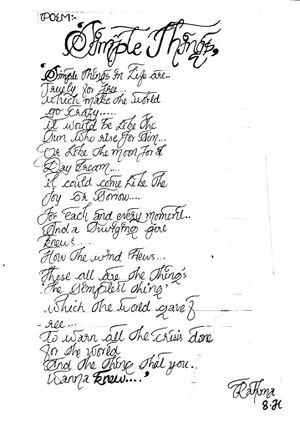 POEM:-
'Simple Things'
'Simple Things In Life are..
Truely for free...
which make the world
go crazy.....
it would be like the
Sun who rise for Dim...
Or like the moon for a
Day dream....
it could come like the
Joy or Sorrow....
for each and every moment..
And a Swinging give
knews....
How the wind flews...
These all are the thing's
'the Simplest thing'
which the world gave f
ree...
to warn all the crisis done
for the world
And the thing that you.
wanna knew....'
8-H